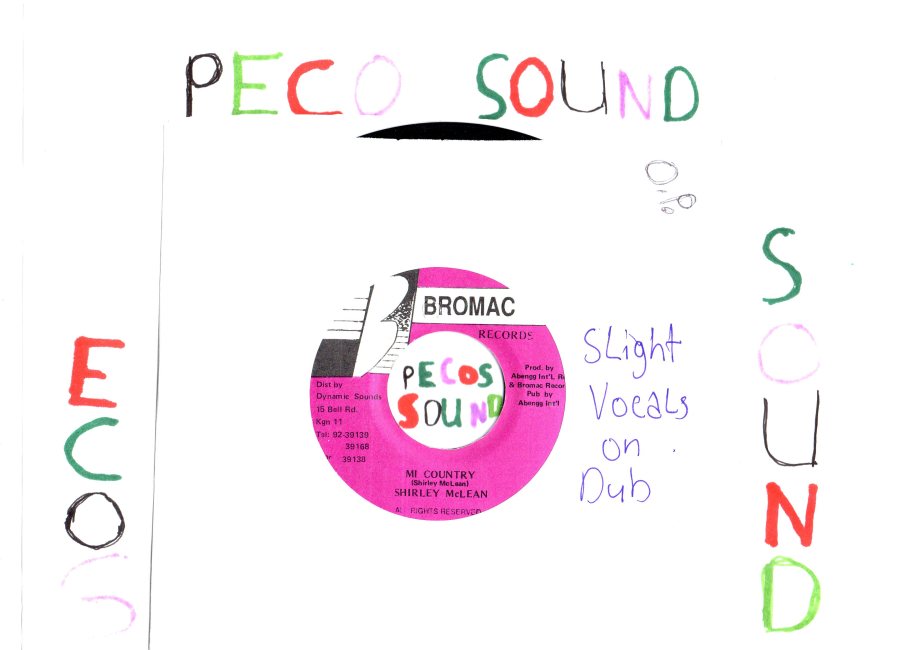 PECO SOUND
BROMAC
RECORDS
PECOS
SOUND
Prod. by
Abengg Int'L R
& Bromac Recor
Pub by
Abengg Int'l
Dist by
Dynamic Sounds
15 Bell Rd.
Kgn 11
Tel: 92-39139
39168
or 39138
MI COUNTRY
(Shirley McLean)
SHIRLEY McLEAN
ALL RIGHTS RESERVED
SLight
Vocals
on
Dub
ECOS
SOUND